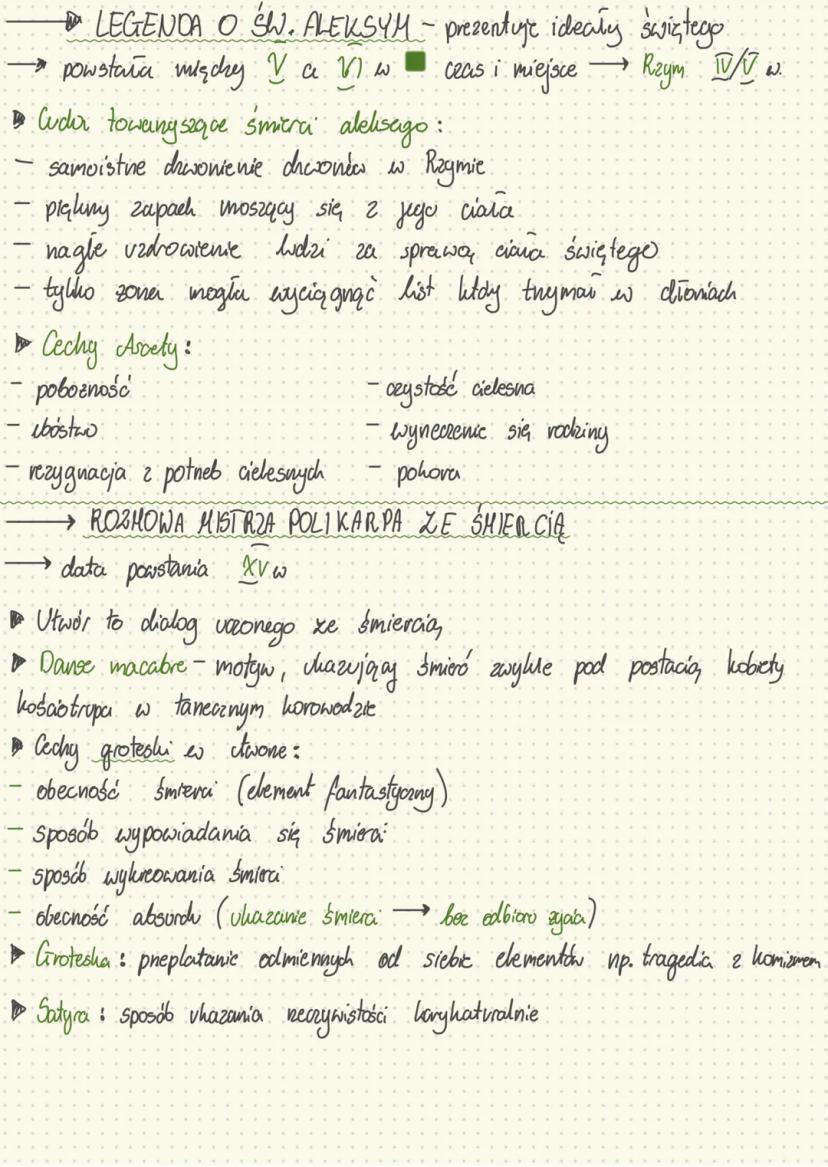 → LEGENDA O ŚW. ALEKSYM – prezentuje ideały świętego
→ powstała między V a VI w ■ czas i miejsce → Rzym IV/V w.
Cuda towarzyszące śmierci aleksego:
– samoistne dzwonienie dzwonów w Rzymie
– piękny zapach unoszący się z jego ciała
– nagłe uzdrowienie ludzi za sprawą ciała świętego
– tylko żona mogła wyciągnąć list który trzymał w dłoniach
Cechy Ascety:
– pobożność – czystość cielesna
– ubóstwo – wyrzeczenie się rodziny
– rezygnacja z potrzeb cielesnych – pokora
→ ROZMOWA MISTRZA POLIKARPA ZE ŚMIERCIĄ
→ data powstania XV w
Utwór to dialog uczonego ze śmiercią
Danse macabre – motyw, ukazujący śmierć zwykle pod postacią kobiety
kościotrupa w tanecznym korowodzie
Cechy groteski w utworze:
– obecność śmierci (element fantastyczny)
– sposób wypowiadania się śmierci
– sposób wykreowania śmierci
– obecność absurdu (ukazanie śmierci → bez odbioru życia)
Groteska: przeplatanie odmiennych od siebie elementów np. tragedia z komizmem
Satyra: sposób ukazania rzeczywistości karykaturalnie